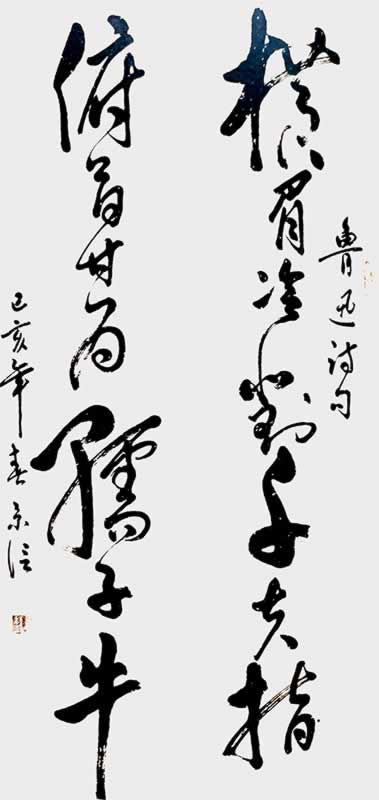 魯迅诗句
横眉冷對千夫指
俯首甘为孺子牛
己亥年春